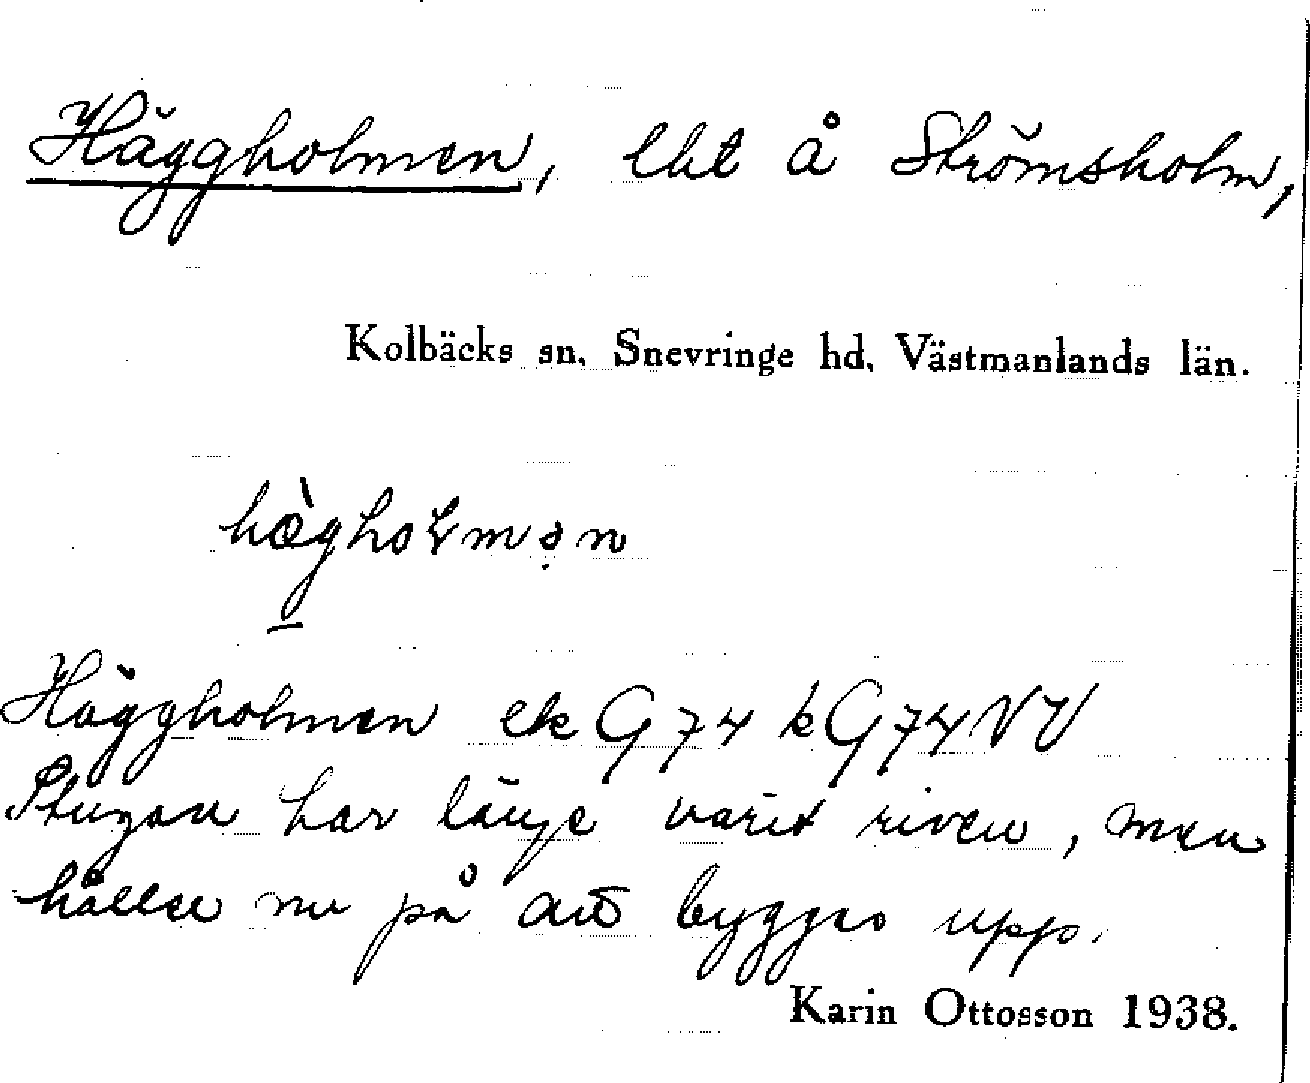 Häggholmen, lht å Strömsholm,
Kolbäcks sn, Snevringe hd, Västmanlands län.
hæ̀gholmən
Häggholmen ek G 74 k G 74 NV
Stugan har länge varit riven, men
håller nu på att bygges upp.
Karin Ottosson 1938.